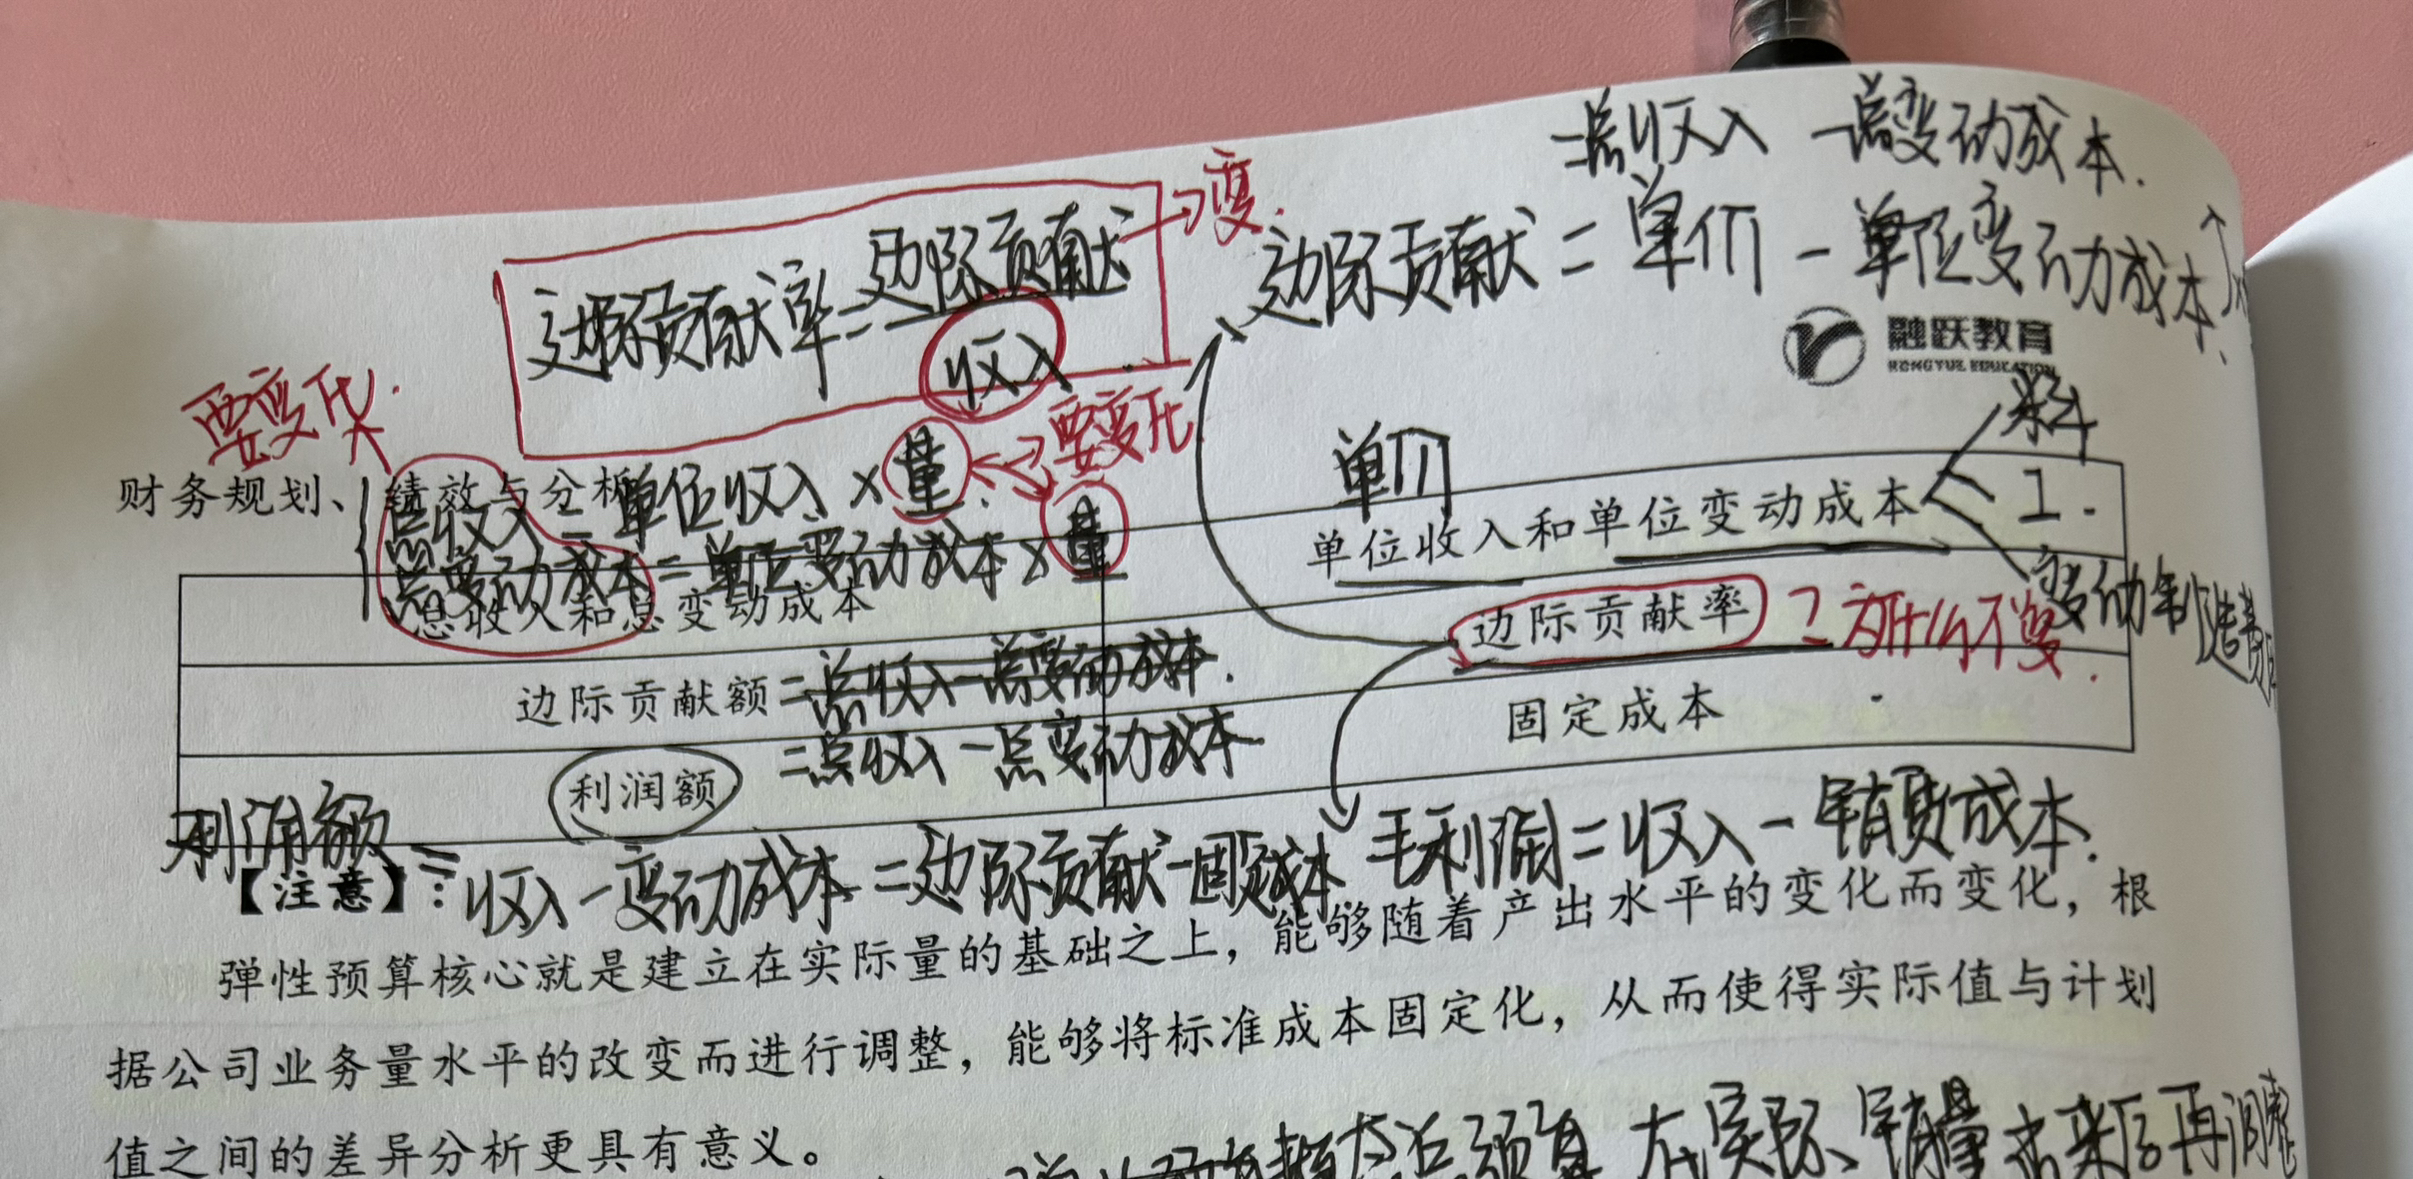 =总收入 -总变动成本.
→变.
边际贡献率=边际贡献
收入
边际贡献=单价-单位变动成本
融跃教育
RONGYUE EDUCATION
要变化.
要变化
料
单价
工.
变动制造费用
财务规划、绩效与分析
总收入=单位收入×量.
总变动成本=单位变动成本×量
总收入和总变动成本
单位收入和单位变动成本
边际贡献额=总收入-总变动成本.
边际贡献率
?为什么不变.
=总收入-总变动成本
利润额
固定成本
利润额=收入-变动成本=边际贡献-固定成本
毛利润=收入-销货成本.
【注意】:
弹性预算核心就是建立在实际量的基础之上，能够随着产出水平的变化而变化，根
据公司业务量水平的改变而进行调整，能够将标准成本固定化，从而使得实际值与计划
值之间的差异分析更具有意义。
在实际销量出来后再调整